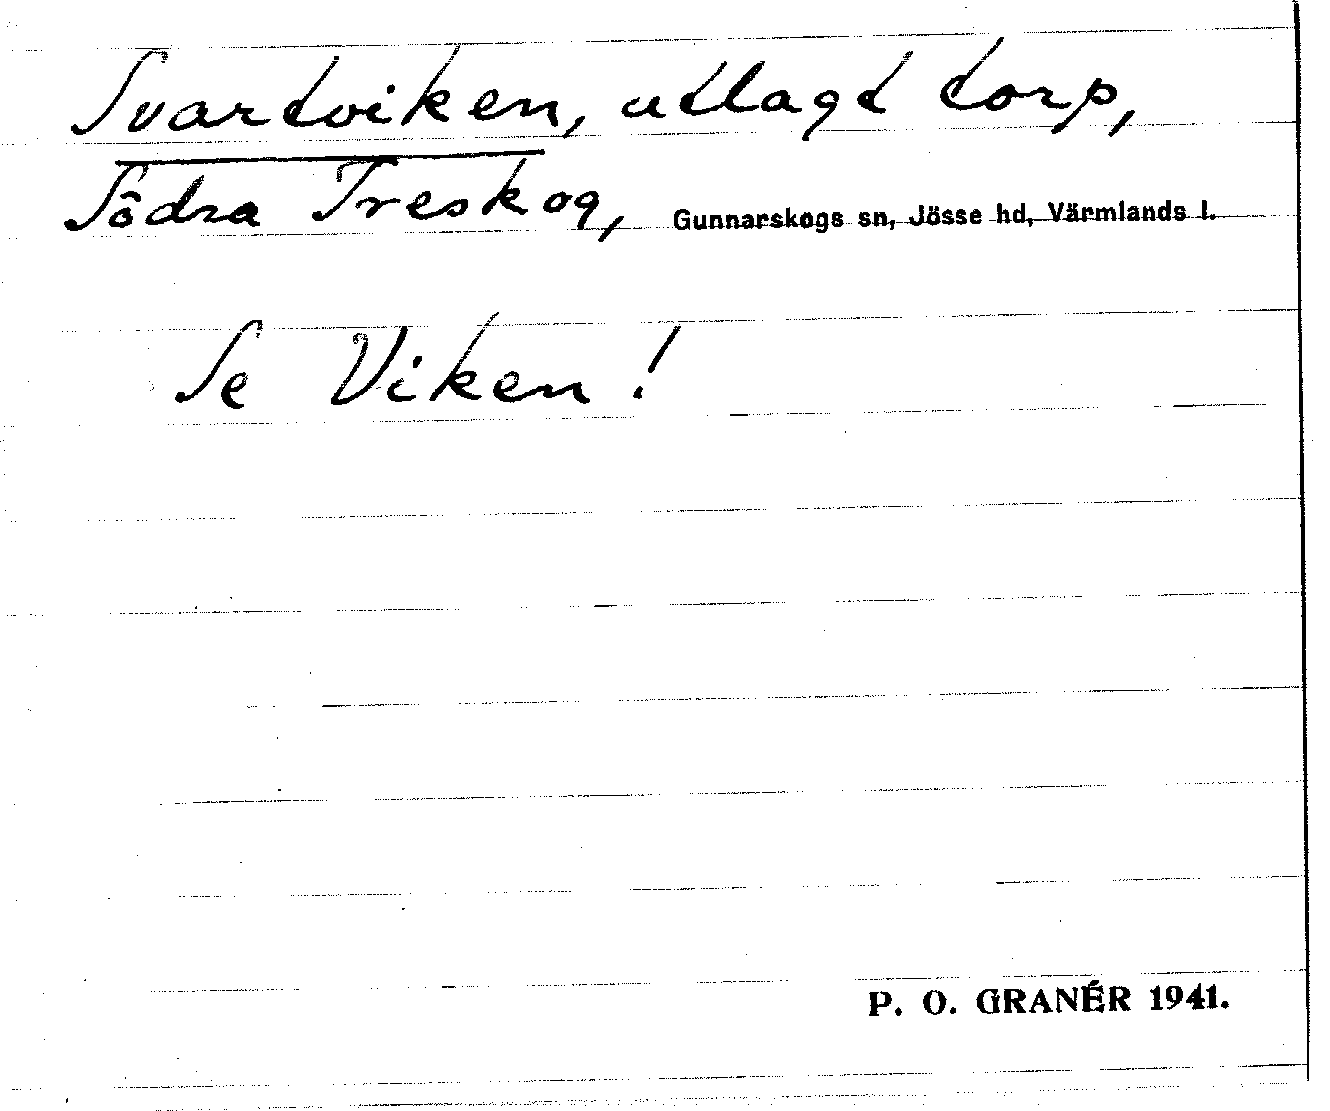 Svartviken, utlagt torp,
Södra Treskog, Gunnarskogs sn, Jösse hd, Värmlands l.
Se Viken!
P. O. GRANÉR 1941.